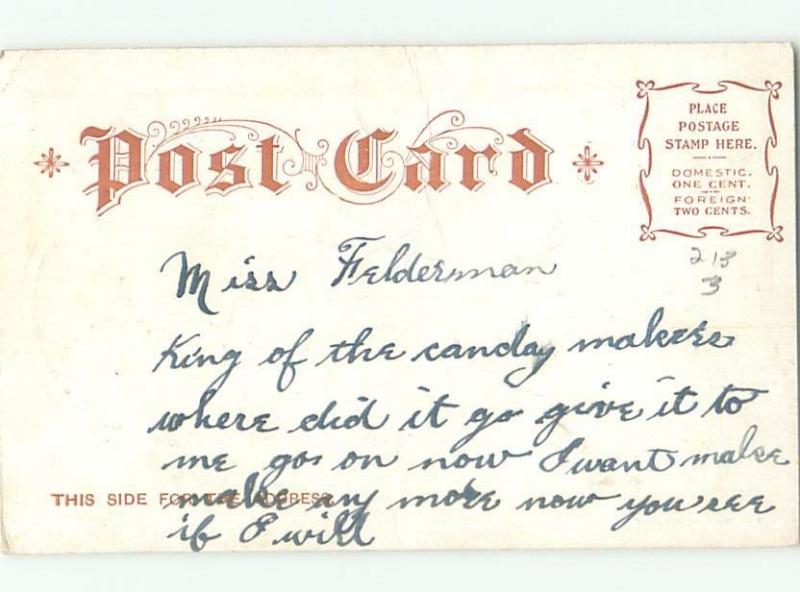 Post Card
PLACE
POSTAGE
STAMP HERE.
DOMESTIC.
ONE CENT.
FOREIGN
TWO CENTS.
213
3
Miss Felderman
King of the canday makers
where did it go give it to
me goi on now I want make
THIS SIDE FOR THE ADDRESS
make any more now you see
if I will